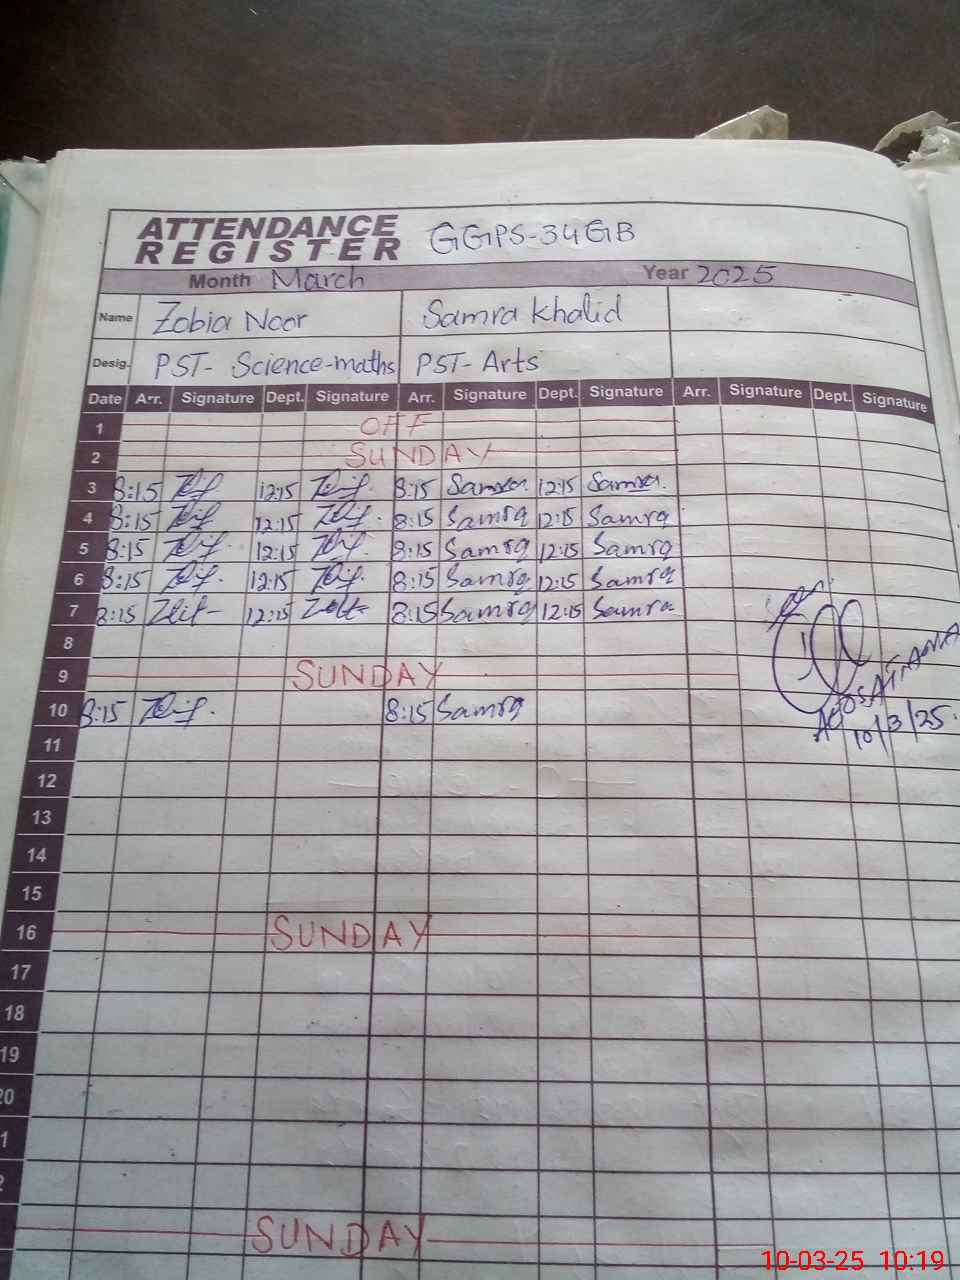 ATTENDANCE
REGISTER GGPS-34GB
Month March Year 2025
Name Zobia Noor Samra Khalid
Desig. PST- Science-maths PST- Arts
Date Arr. Signature Dept. Signature Arr. Signature Dept. Signature Arr. Signature Dept. Signature
1 OFF
2 SUNDAY
3 8:15 12:15 8:15 Samra 12:15 Samra
4 8:15 12:15 8:15 Samra 12:15 Samra
5 8:15 12:15 8:15 Samra 12:15 Samra
6 8:15 12:15 8:15 Samra 12:15 Samra
7 8:15 12:15 8:15 Samra 12:15 Samra
8
9 SUNDAY
10 8:15 8:15 Samra
10/3/25
11
12
13
14
15
16 SUNDAY
17
18
19
20
1
2
SUNDAY
10-03-25 10:19